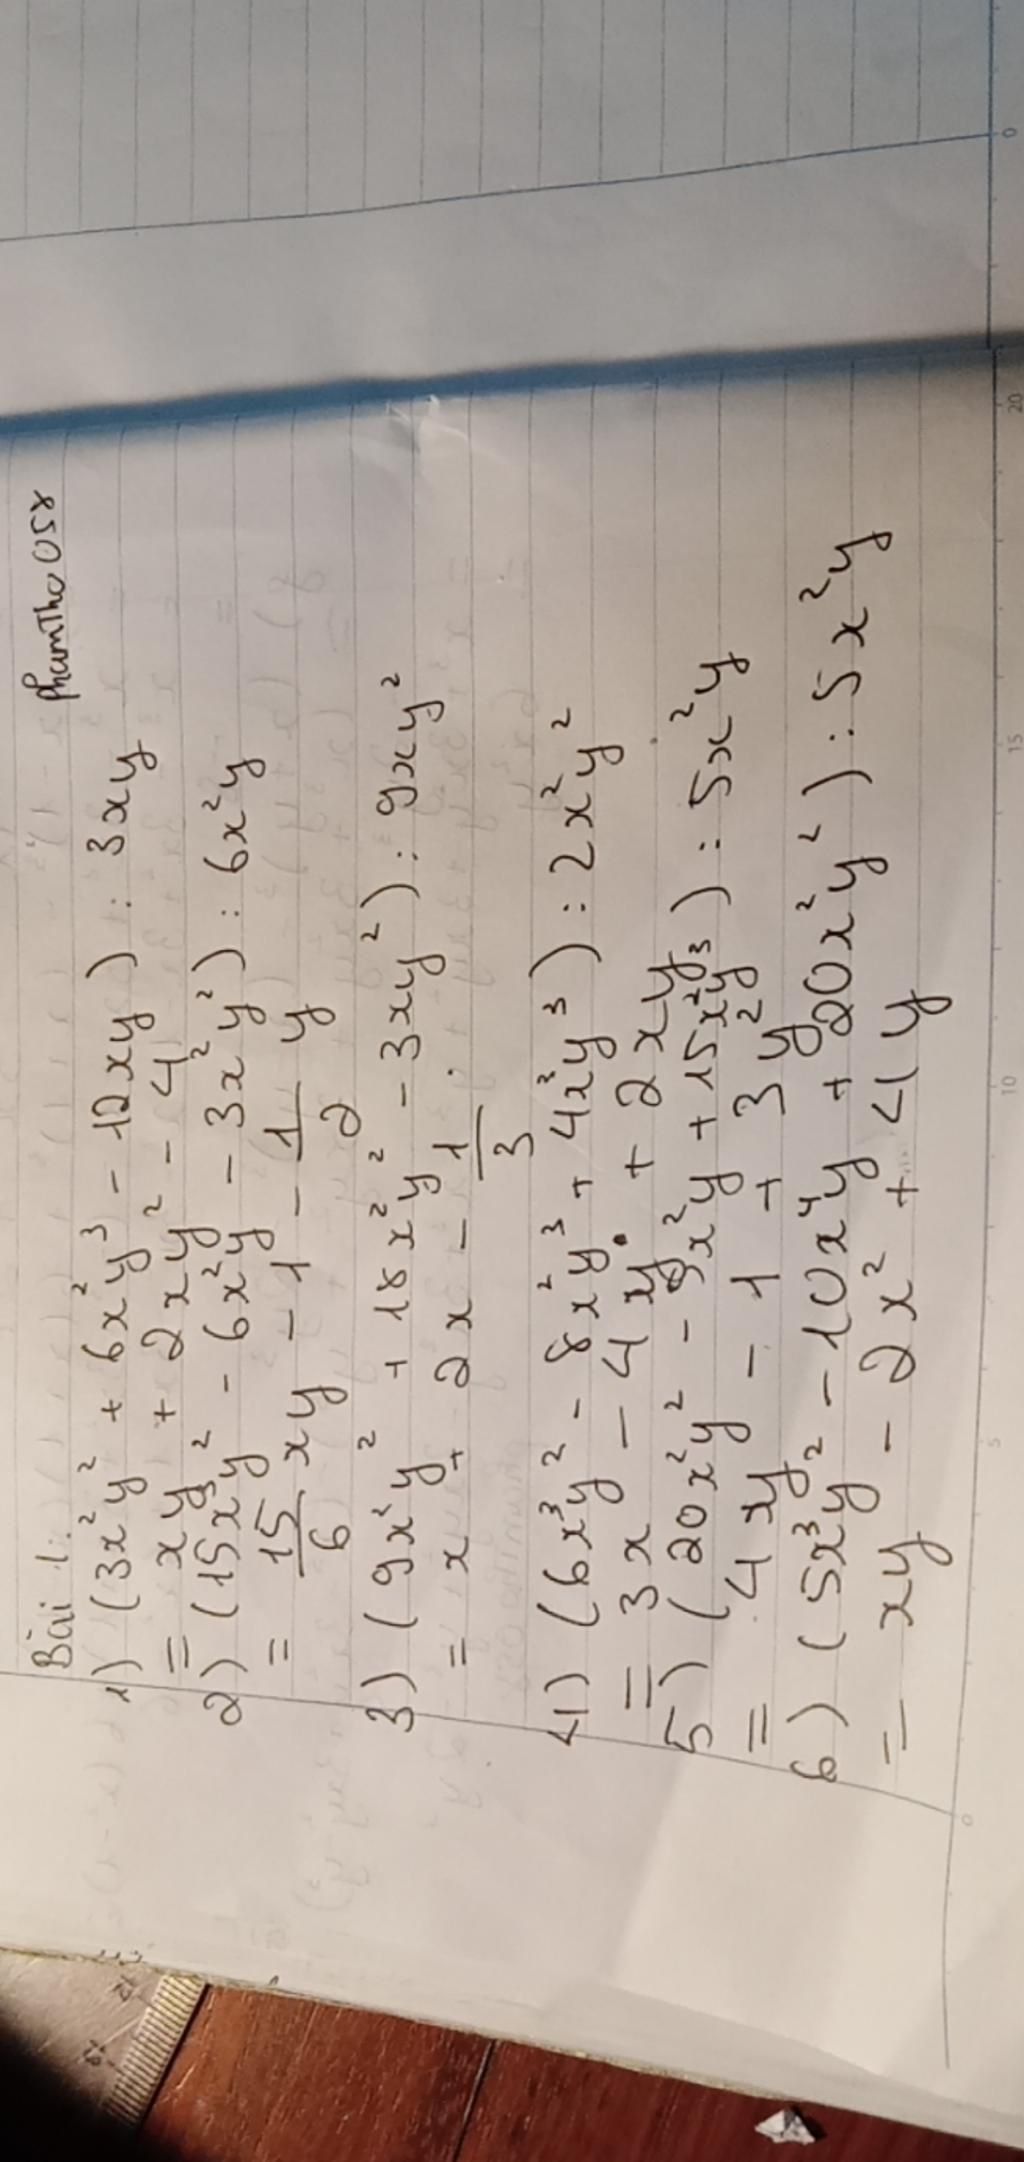 phamtho058
Bài 1:
1) (3x²y² + 6x²y³ - 12xy) : 3xy
= xy + 2xy² - 4
2) (15x³y² - 6x²y - 3x²y²) : 6x²y
= 15/6 xy - 1 - 1/2 y
3) (9x²y² + 18x²y² - 3xy²) : 9xy²
= x + 2x - 1/3
4) (6x³y² - 8x²y³ + 4x³y³) : 2x²y²
= 3x - 4y + 2xy
5) (20x²y² - 5x²y + 15x²y³) : 5x²y
= 4xy - 1 + 3y²
6) (5x³y² - 10x⁴y + 20x²y²) : 5x²y
= xy - 2x² + 4y
0
5
10
15
20
0